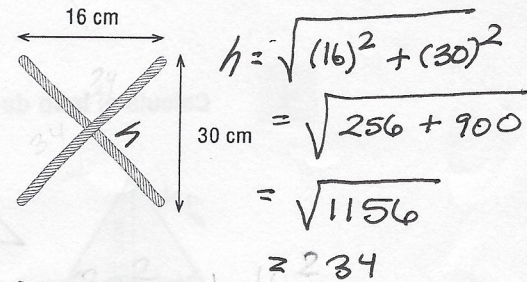 16 cm
30 cm
h
h = √(16)² + (30)²
= √256 + 900
= √1156
= 34